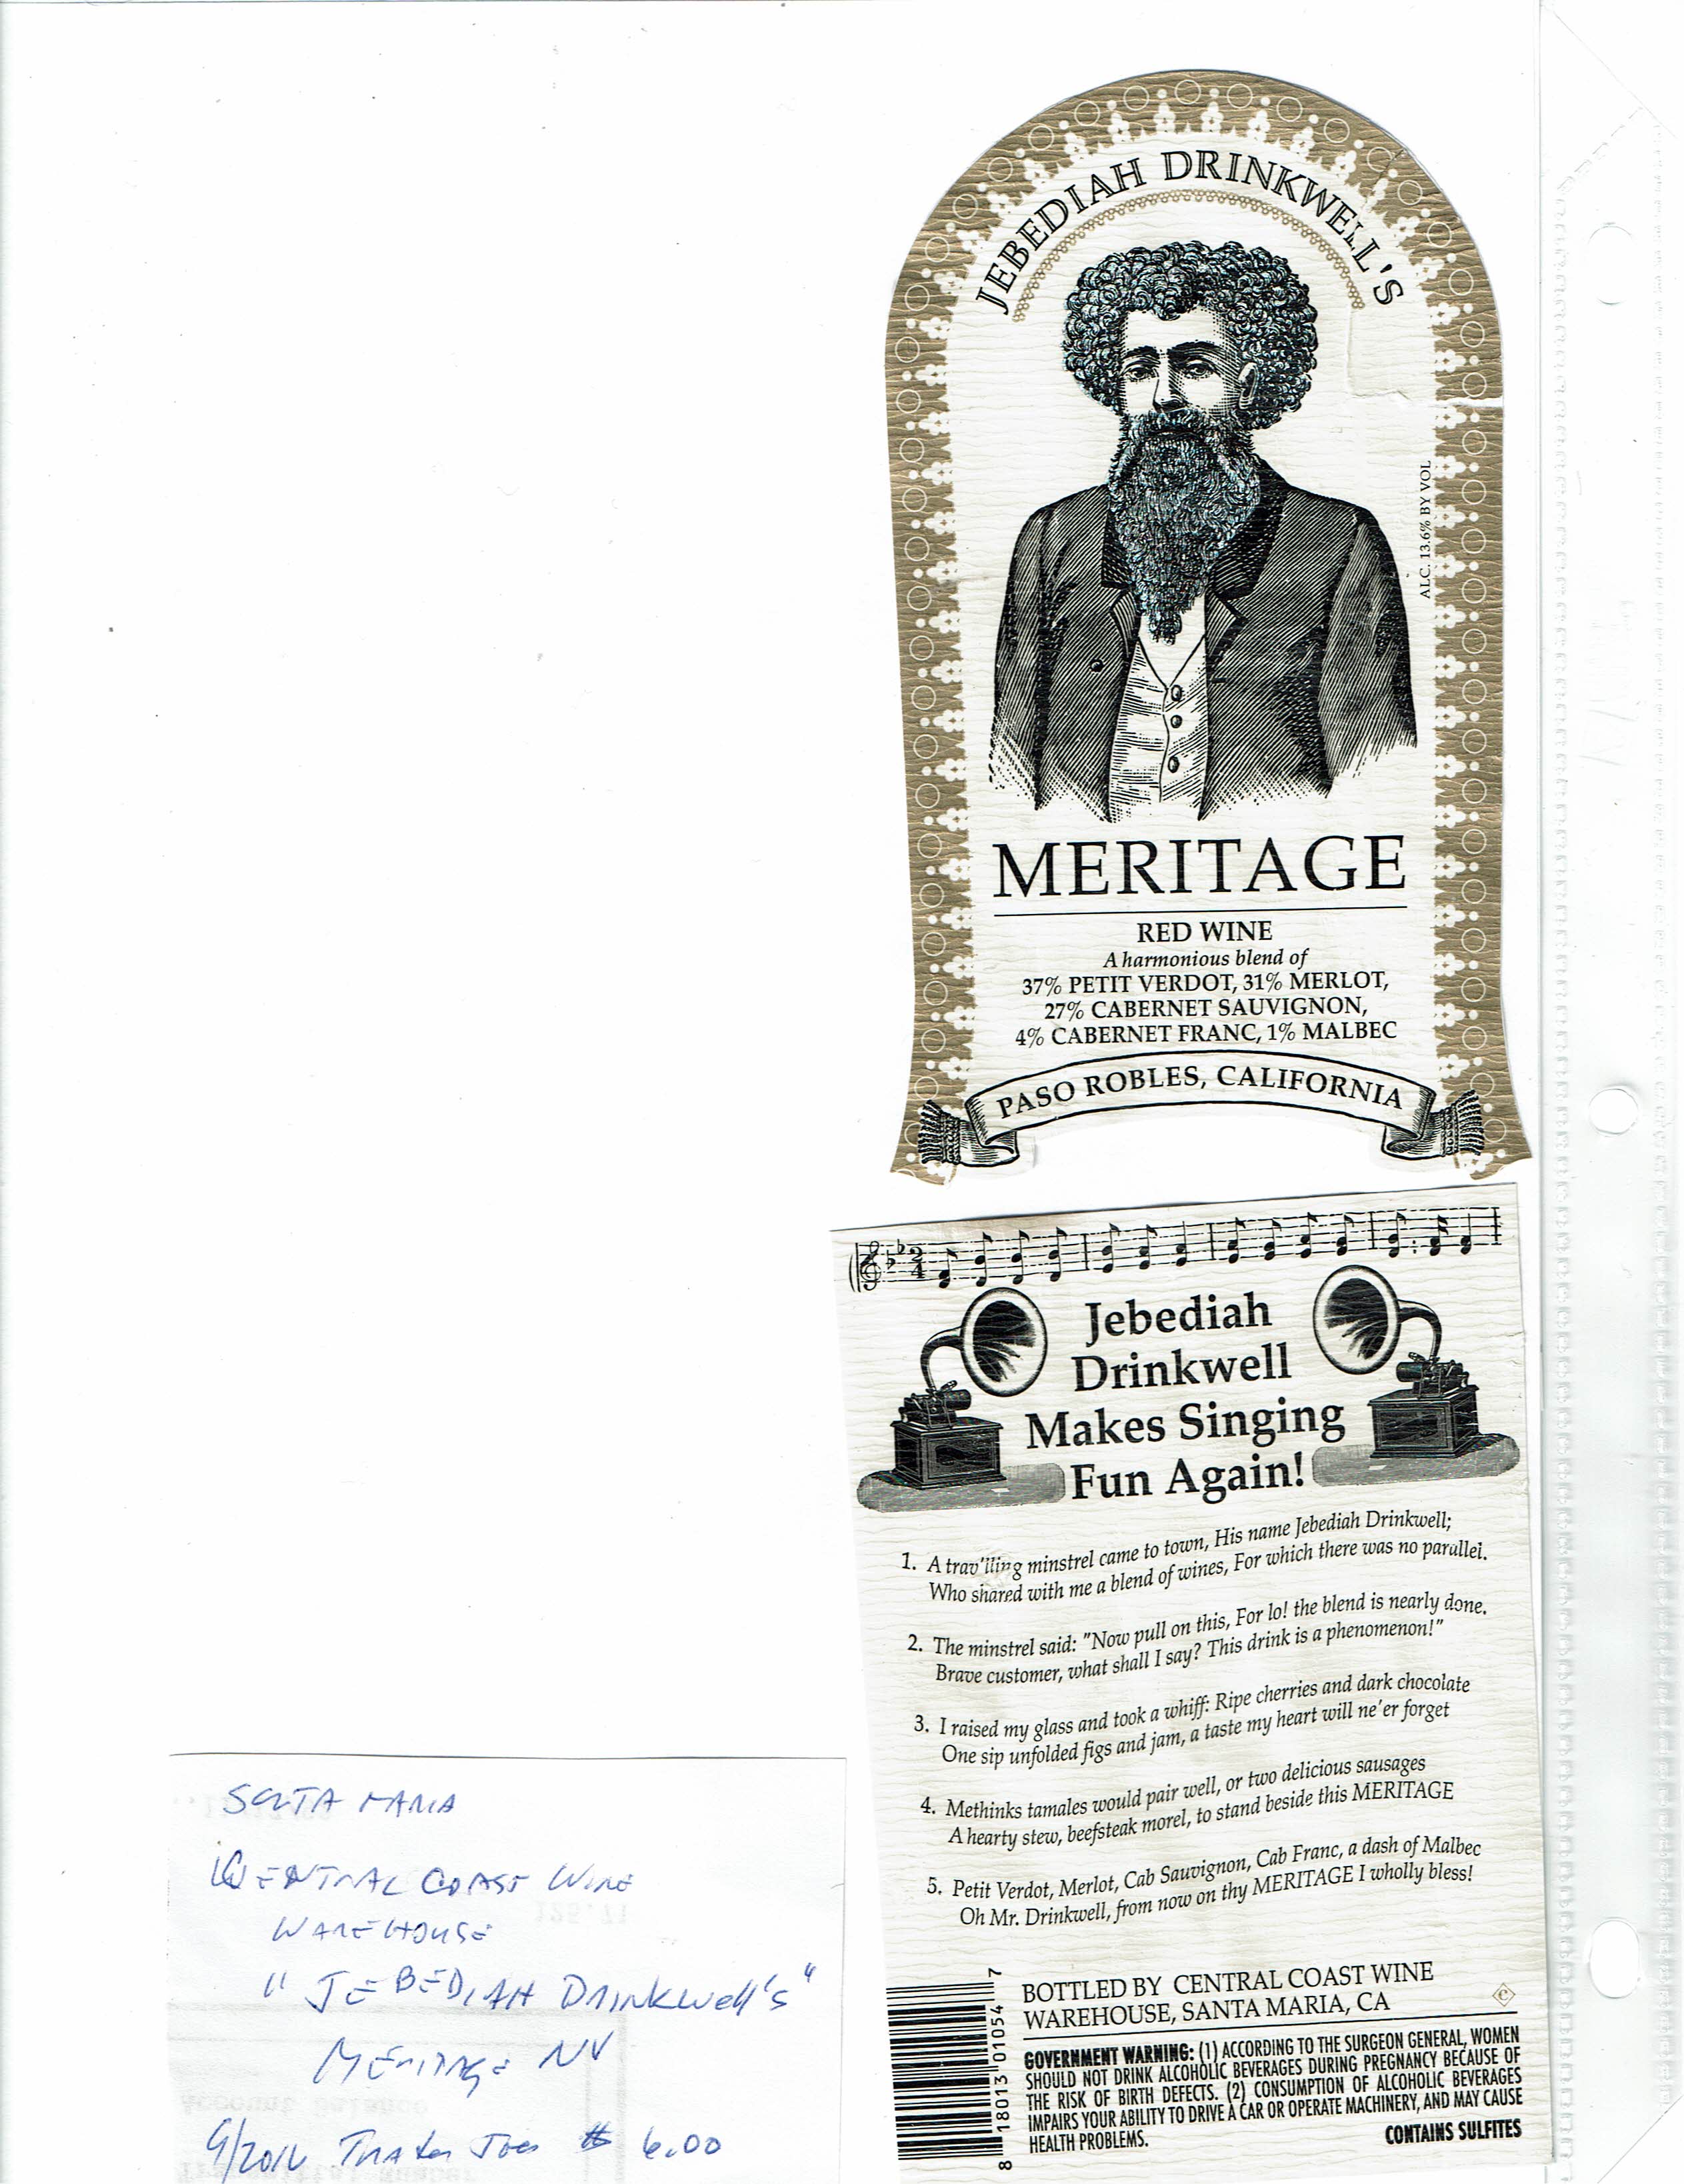 JEBEDIAH DRINKWELL'S
ALC. 13.6% BY VOL
MERITAGE
RED WINE
A harmonious blend of
37% PETIT VERDOT, 31% MERLOT,
27% CABERNET SAUVIGNON,
4% CABERNET FRANC, 1% MALBEC
PASO ROBLES, CALIFORNIA
2
4
Jebediah
Drinkwell
Makes Singing
Fun Again!
1. A trav'lling minstrel came to town, His name Jebediah Drinkwell;
Who shared with me a blend of wines, For which there was no parallel.
2. The minstrel said: "Now pull on this, For lo! the blend is nearly done.
Brave customer, what shall I say? This drink is a phenomenon!"
3. I raised my glass and took a whiff: Ripe cherries and dark chocolate
One sip unfolded figs and jam, a taste my heart will ne'er forget
4. Methinks tamales would pair well, or two delicious sausages
A hearty stew, beefsteak morel, to stand beside this MERITAGE
5. Petit Verdot, Merlot, Cab Sauvignon, Cab Franc, a dash of Malbec
Oh Mr. Drinkwell, from now on thy MERITAGE I wholly bless!
BOTTLED BY CENTRAL COAST WINE
WAREHOUSE, SANTA MARIA, CA
GOVERNMENT WARNING: (1) ACCORDING TO THE SURGEON GENERAL, WOMEN
SHOULD NOT DRINK ALCOHOLIC BEVERAGES DURING PREGNANCY BECAUSE OF
THE RISK OF BIRTH DEFECTS. (2) CONSUMPTION OF ALCOHOLIC BEVERAGES
IMPAIRS YOUR ABILITY TO DRIVE A CAR OR OPERATE MACHINERY, AND MAY CAUSE
HEALTH PROBLEMS.
CONTAINS SULFITES
8 18013 01054 7
MARIA
CENTRAL COAST WINE
WAREHOUSE
"JEBEDIAH DRINKWell's"
MERITAGE NV
9/2016 Trader Joes $ 6.00